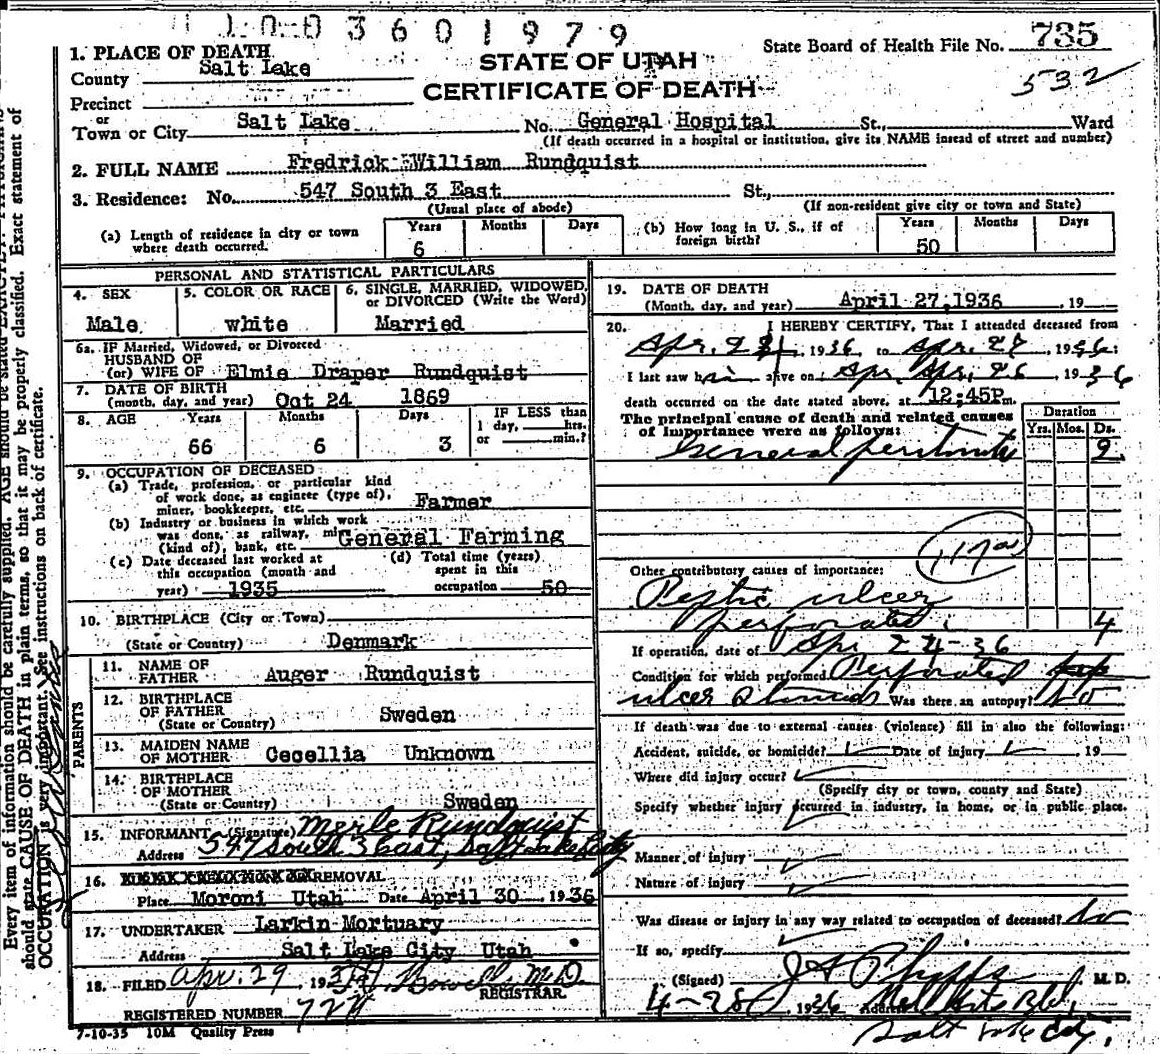 1003601979
1. PLACE OF DEATH
State Board of Health File No. 735
County Salt Lake
STATE OF UTAH
532
Precinct
CERTIFICATE OF DEATH
or
Town or City Salt Lake No. General Hospital St., Ward
(If death occurred in a hospital or institution, give its NAME insead of street and number)
2. FULL NAME Fredrick William Rundquist
3. Residence: No. 547 South 3 East St.,
(Usual place of abode) (If non-resident give city or town and State)
(a) Length of residence in city or town where death occurred. Years 6 Months Days
(b) How long in U. S., if of foreign birth? Years 50 Months Days
PERSONAL AND STATISTICAL PARTICULARS
4. SEX Male
5. COLOR OR RACE white
6. SINGLE, MARRIED, WIDOWED, or DIVORCED (Write the Word) Married
6a. IF Married, Widowed, or Divorced
HUSBAND OF
(or) WIFE OF Elmie Draper Rundquist
7. DATE OF BIRTH
(month, day, and year) Oct 24 1869
8. AGE Years 66 Months 6 Days 3 IF LESS than 1 day, hrs. or min.?
9. OCCUPATION OF DECEASED
(a) Trade, profession, or particular kind
of work done, as engineer (type of),
miner, bookkeeper, etc. Farmer
(b) Industry or business in which work
was done, as railway,
(kind of), bank, etc. General Farming
(c) Date deceased last worked at
this occupation (month and
year) 1935
(d) Total time (years)
spent in this
occupation 50
10. BIRTHPLACE (City or Town)
(State or Country) Denmark
PARENTS
11. NAME OF
FATHER Auger Rundquist
12. BIRTHPLACE
OF FATHER
(State or Country) Sweden
13. MAIDEN NAME
OF MOTHER Cecellia Unknown
14. BIRTHPLACE
OF MOTHER
(State or Country) Sweden
15. INFORMANT (Signature) Merle Rundquist
Address 547 South 3 East, Salt Lake City
16. REMOVAL
Place Moroni Utah Date April 30 1936
17. UNDERTAKER Larkin Mortuary
Address Salt Lake City Utah
18. FILED Apr. 29 M.D.
REGISTRAR
REGISTERED NUMBER
7-10-35 10M Quality Press
19. DATE OF DEATH
(Month, day, and year) April 27, 1936 , 19
20. I HEREBY CERTIFY, That I attended deceased from
Apr. 1936 to Apr. 27, 1936;
I last saw him alive on Apr. Apr. 26 1936
death occurred on the date stated above, at 12:45P m.
The principal cause of death and related causes
of importance were as follows:
Duration
Yrs. Mos. Ds.
General peritonitis 2
117a
Other contributory causes of importance:
Peptic ulcer
perforated. 4
If operation, date of Apr 24-36
Condition for which performed Perforated
ulcer stomach Was there an autopsy? No
If death was due to external causes (violence) fill in also the following:
Accident, suicide, or homicide? Date of injury , 19
Where did injury occur?
(Specify city or town, county and State)
Specify whether injury occurred in industry, in home, or in public place.
Manner of injury
Nature of injury
Was disease or injury in any way related to occupation of deceased? No
If so, specify
(Signed) M. D.
4-28 1936 Address Med Arts Bld,
Salt Lake City.
Every item of information should be carefully supplied. AGE should be stated EXACTLY. PHYSICIANS
should state CAUSE OF DEATH in plain terms, so that it may be properly classified. Exact statement of
OCCUPATION is very important. See instructions on back of certificate.